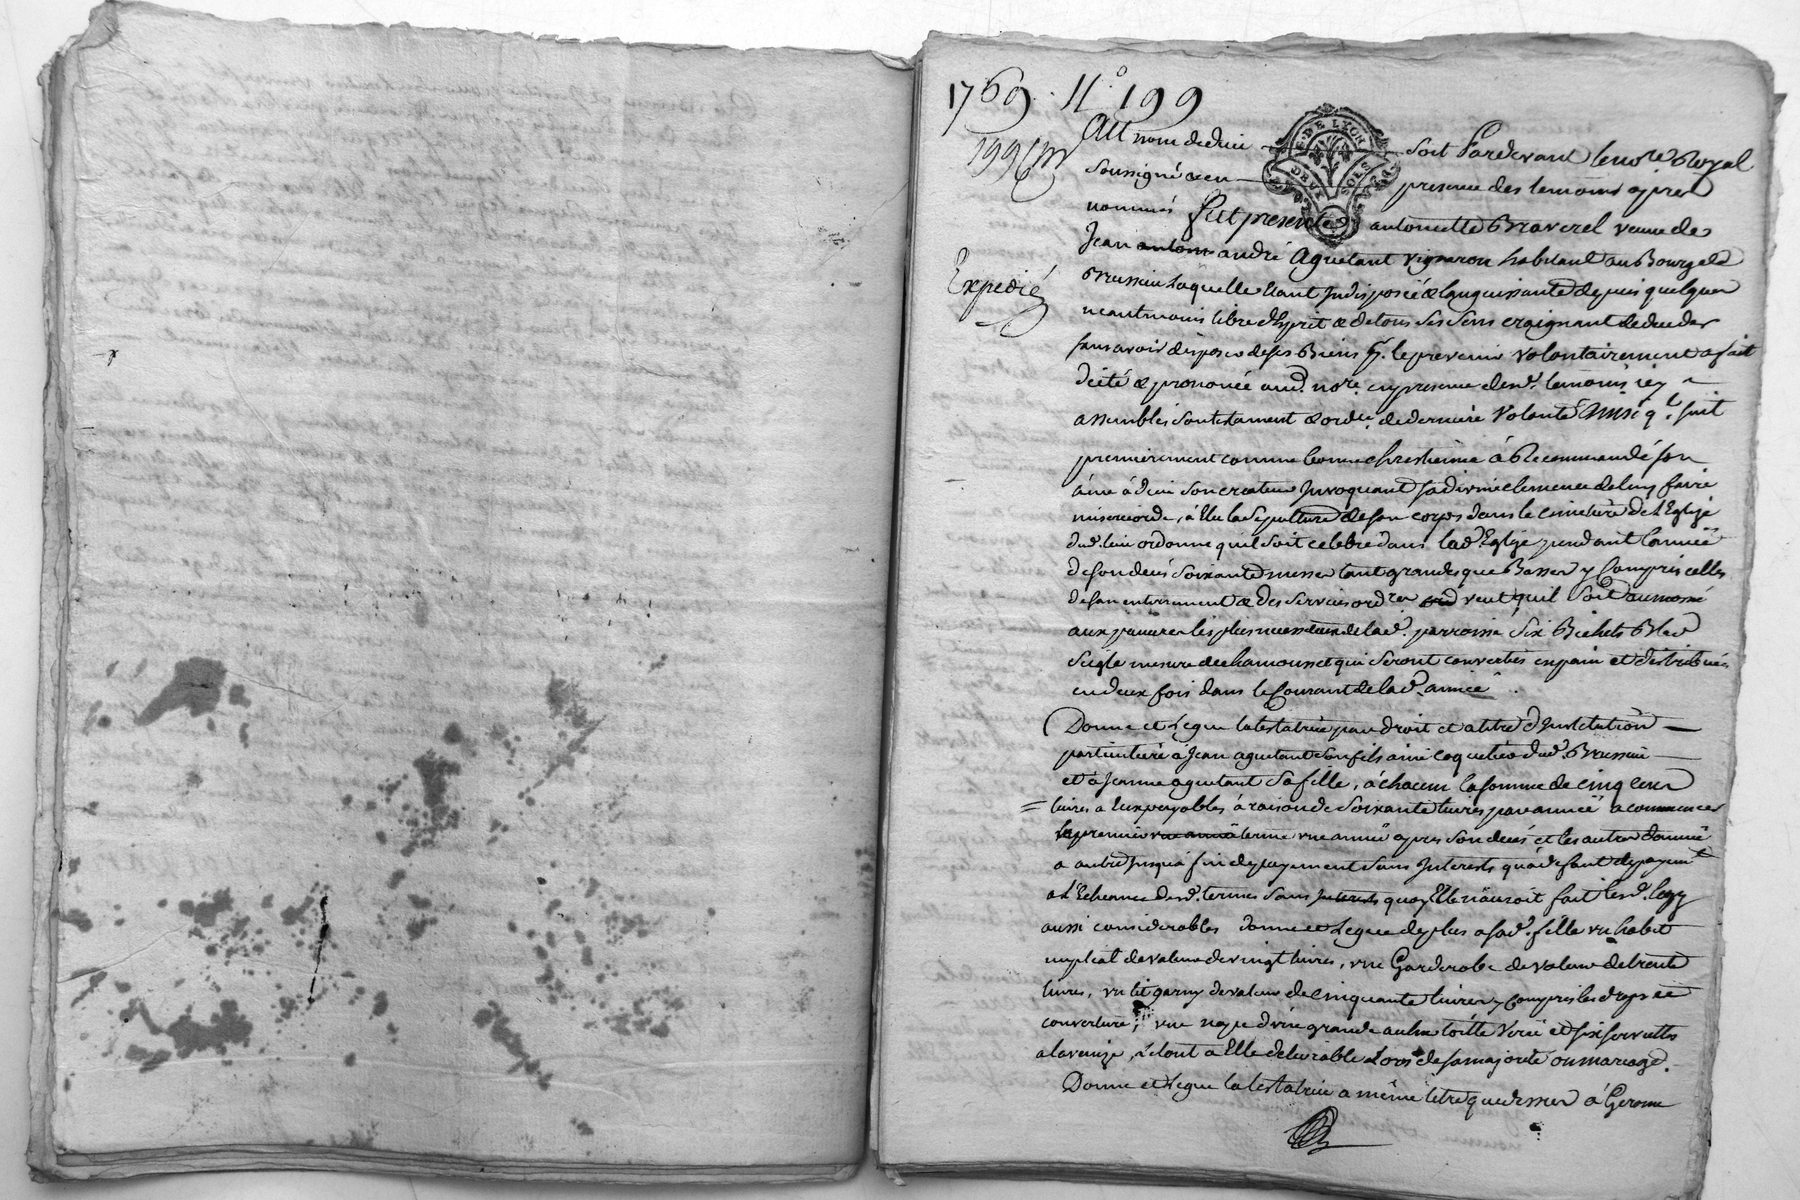 1769. N.° 199
199
Au nom de dieu soit Pardevant le nore Royal
G. DE LYON
DEUX SOLS
soussigné & en presence des temoins apres
nommés fut presente antoinette veuve de
Jean andré Aguetant vigneron habitant au Bourg de
Brussieu laquelle étant Indisposée & languissante depuis quelque
neantmoins libre d'Esprit & de tous ses sens craignant de deceder
sans avoir disposé de ses Biens pr. le prevenir volontairement a fait
dicté & prononcé aud. nore. en presence desd. temoins icy
assemblés son testament & ordce. de derniere volonté Ainsi q.' suit
Expedié
premierement comme bonne chrestienne á Recommandé son
âme á dieu son createur Invoquant sa divine clemence de luy faire
misericorde, á Elu la sepulture de son corps dans le cimetiere de l'Eglise
dud. lieu ordonne qu'il soit celebré dans lad. Eglise pendant l'année
de son decés soixante messes tant grandes que Basses y Compris celles
de son enterrement & des services ordres veut qu'il soit aumosné
aux pauvres les plus necessiteux de lad. parroisse six Bichets Bled
seigle mesure de chamousset qui seront convertis en pain et distribués
en deux fois dans le Courant de lad. année.
Donne et Legue la testatrice par droit et a titre d'Institution
particuliere á Jean aguetant son fils ainé coquetier dud. Brussieu
et á Jeanne aguetant sa fille, á chacun la somme de cinq cens
livres a Eux payables á raison de soixante livres par année a commencer
le premier une année terme une année apres son decés et les autres d'année
a autre Jusqu'á fin de payement sans Interests qu'á defaut de payemt
a l'Echeance desd. termes sans Interests quoy Elle n'auroit fait lesd. legs
aussi considerables donne et Legue de plus a sad. fille un habit
nuptial de valeur de vingt livres, une Garderobe de valeur de trente
livres, un lit garny de valeur de cinquante livres y Compris les draps et
couverture, une nappe d'une grande aulne toille Venise et six serviettes
a la venise, le tout a Elle delivrable Lors de sa majorité ou mariage.
Donne et Legue la testatrice a même titre que dessus á Gerome